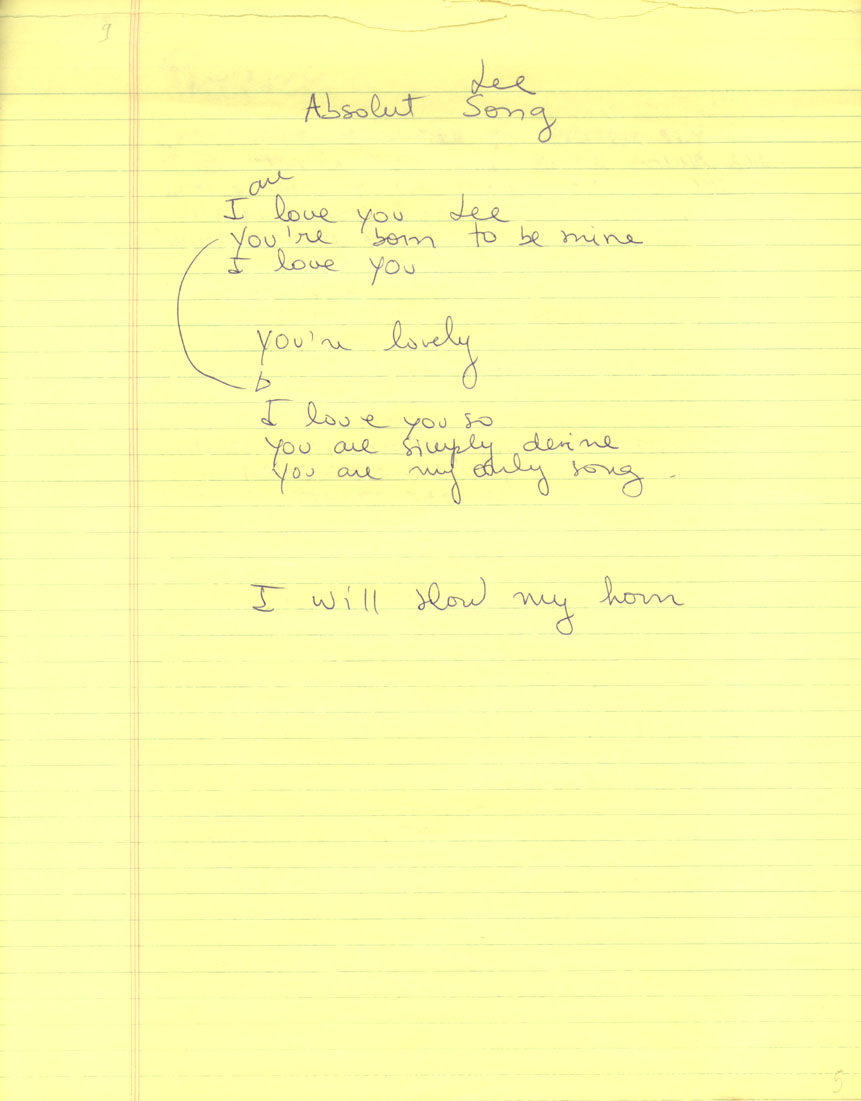 9
Lee
Absolut Song
are
I love you Lee
you're born to be mine
I love you
you're lovely
b
I love you so
you are simply devine
you are my only song.
I will blow my horn
5